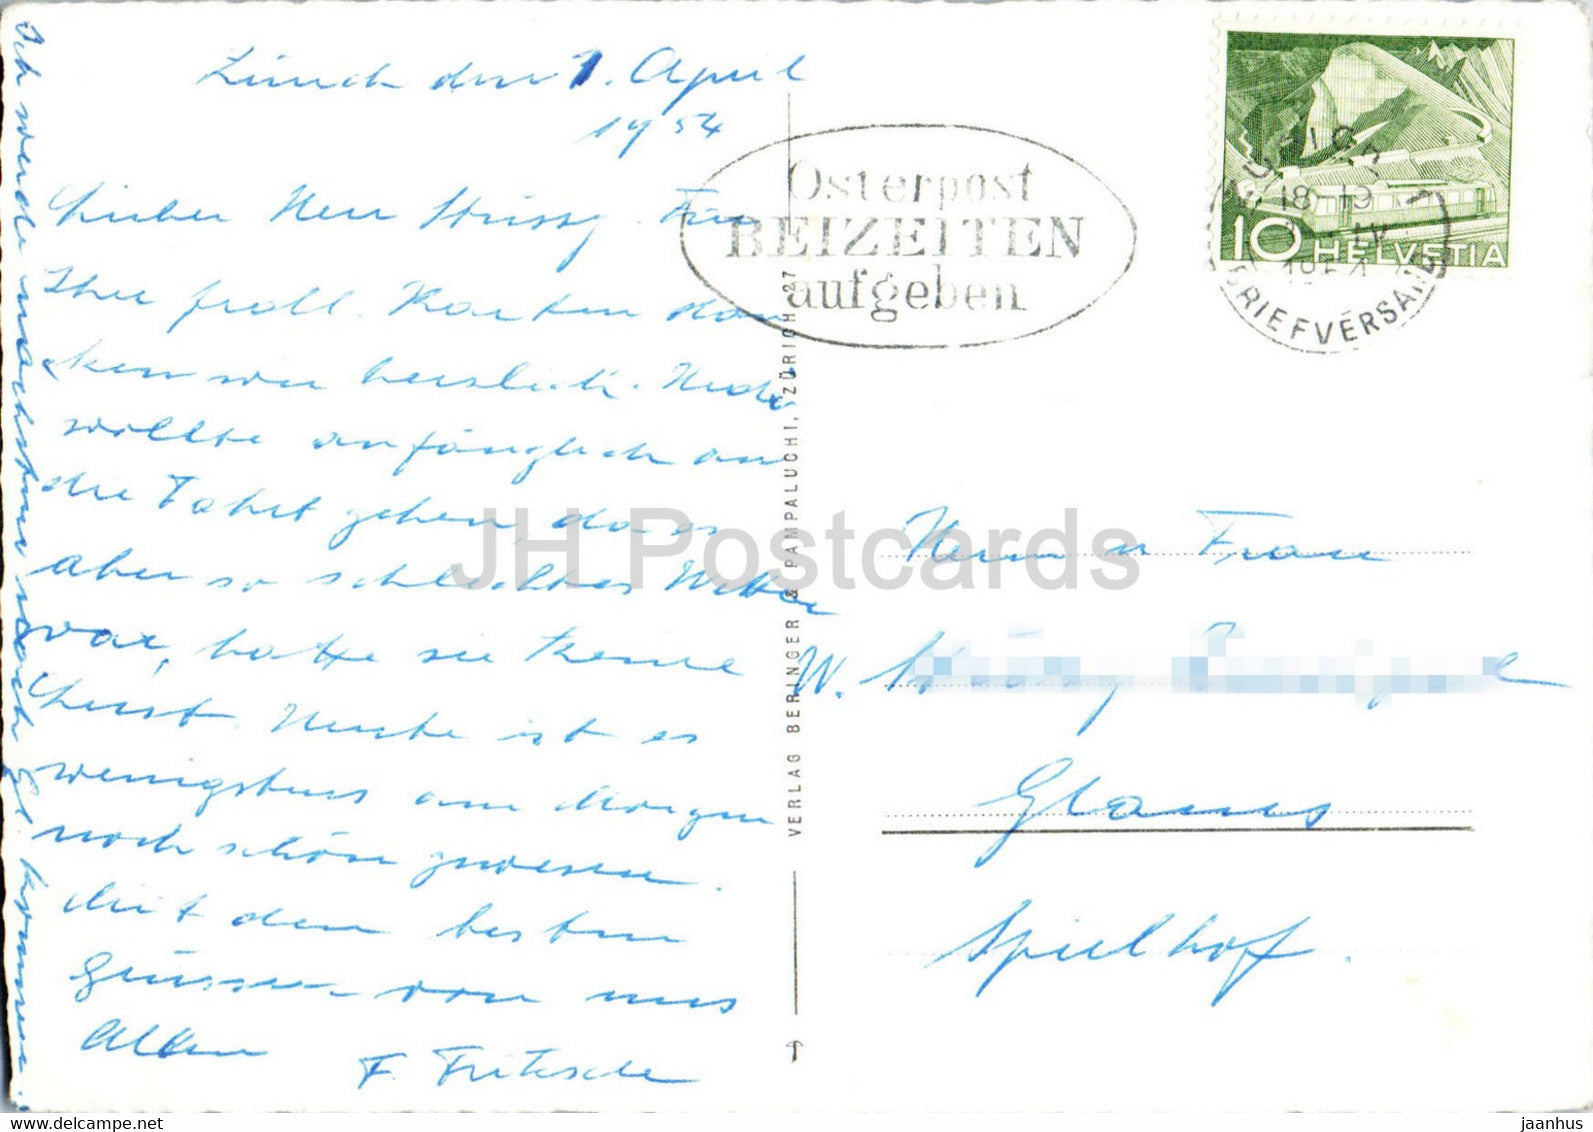 Zürich den 1. April
1954
Lieber Herr Für
Ihre frdl. Karten dan
ken wir herzlich.
wollte anfänglich an
die Fahrt gehen, da es
aber so schlechtes Wetter
war, hatte sie keine
Lust. Heute ist es
wenigstens am Morgen
noch schön gewesen.
Mit den besten
Grüssen von uns
Allen
F. Fritzsche
Ich werde nächstens nach Gl. kommen.
Osterpost
BEIZEITEN
aufgeben
18-19
IV
1954
BRIEFVERSAND
10 HELVETIA
VERLAG BERINGER & PAMPALUCHI, ZÜRICH 27
Herrn u Frau
W.
Glarus
Spielhof.
JH Postcards
www.delcampe.net
jaanhus